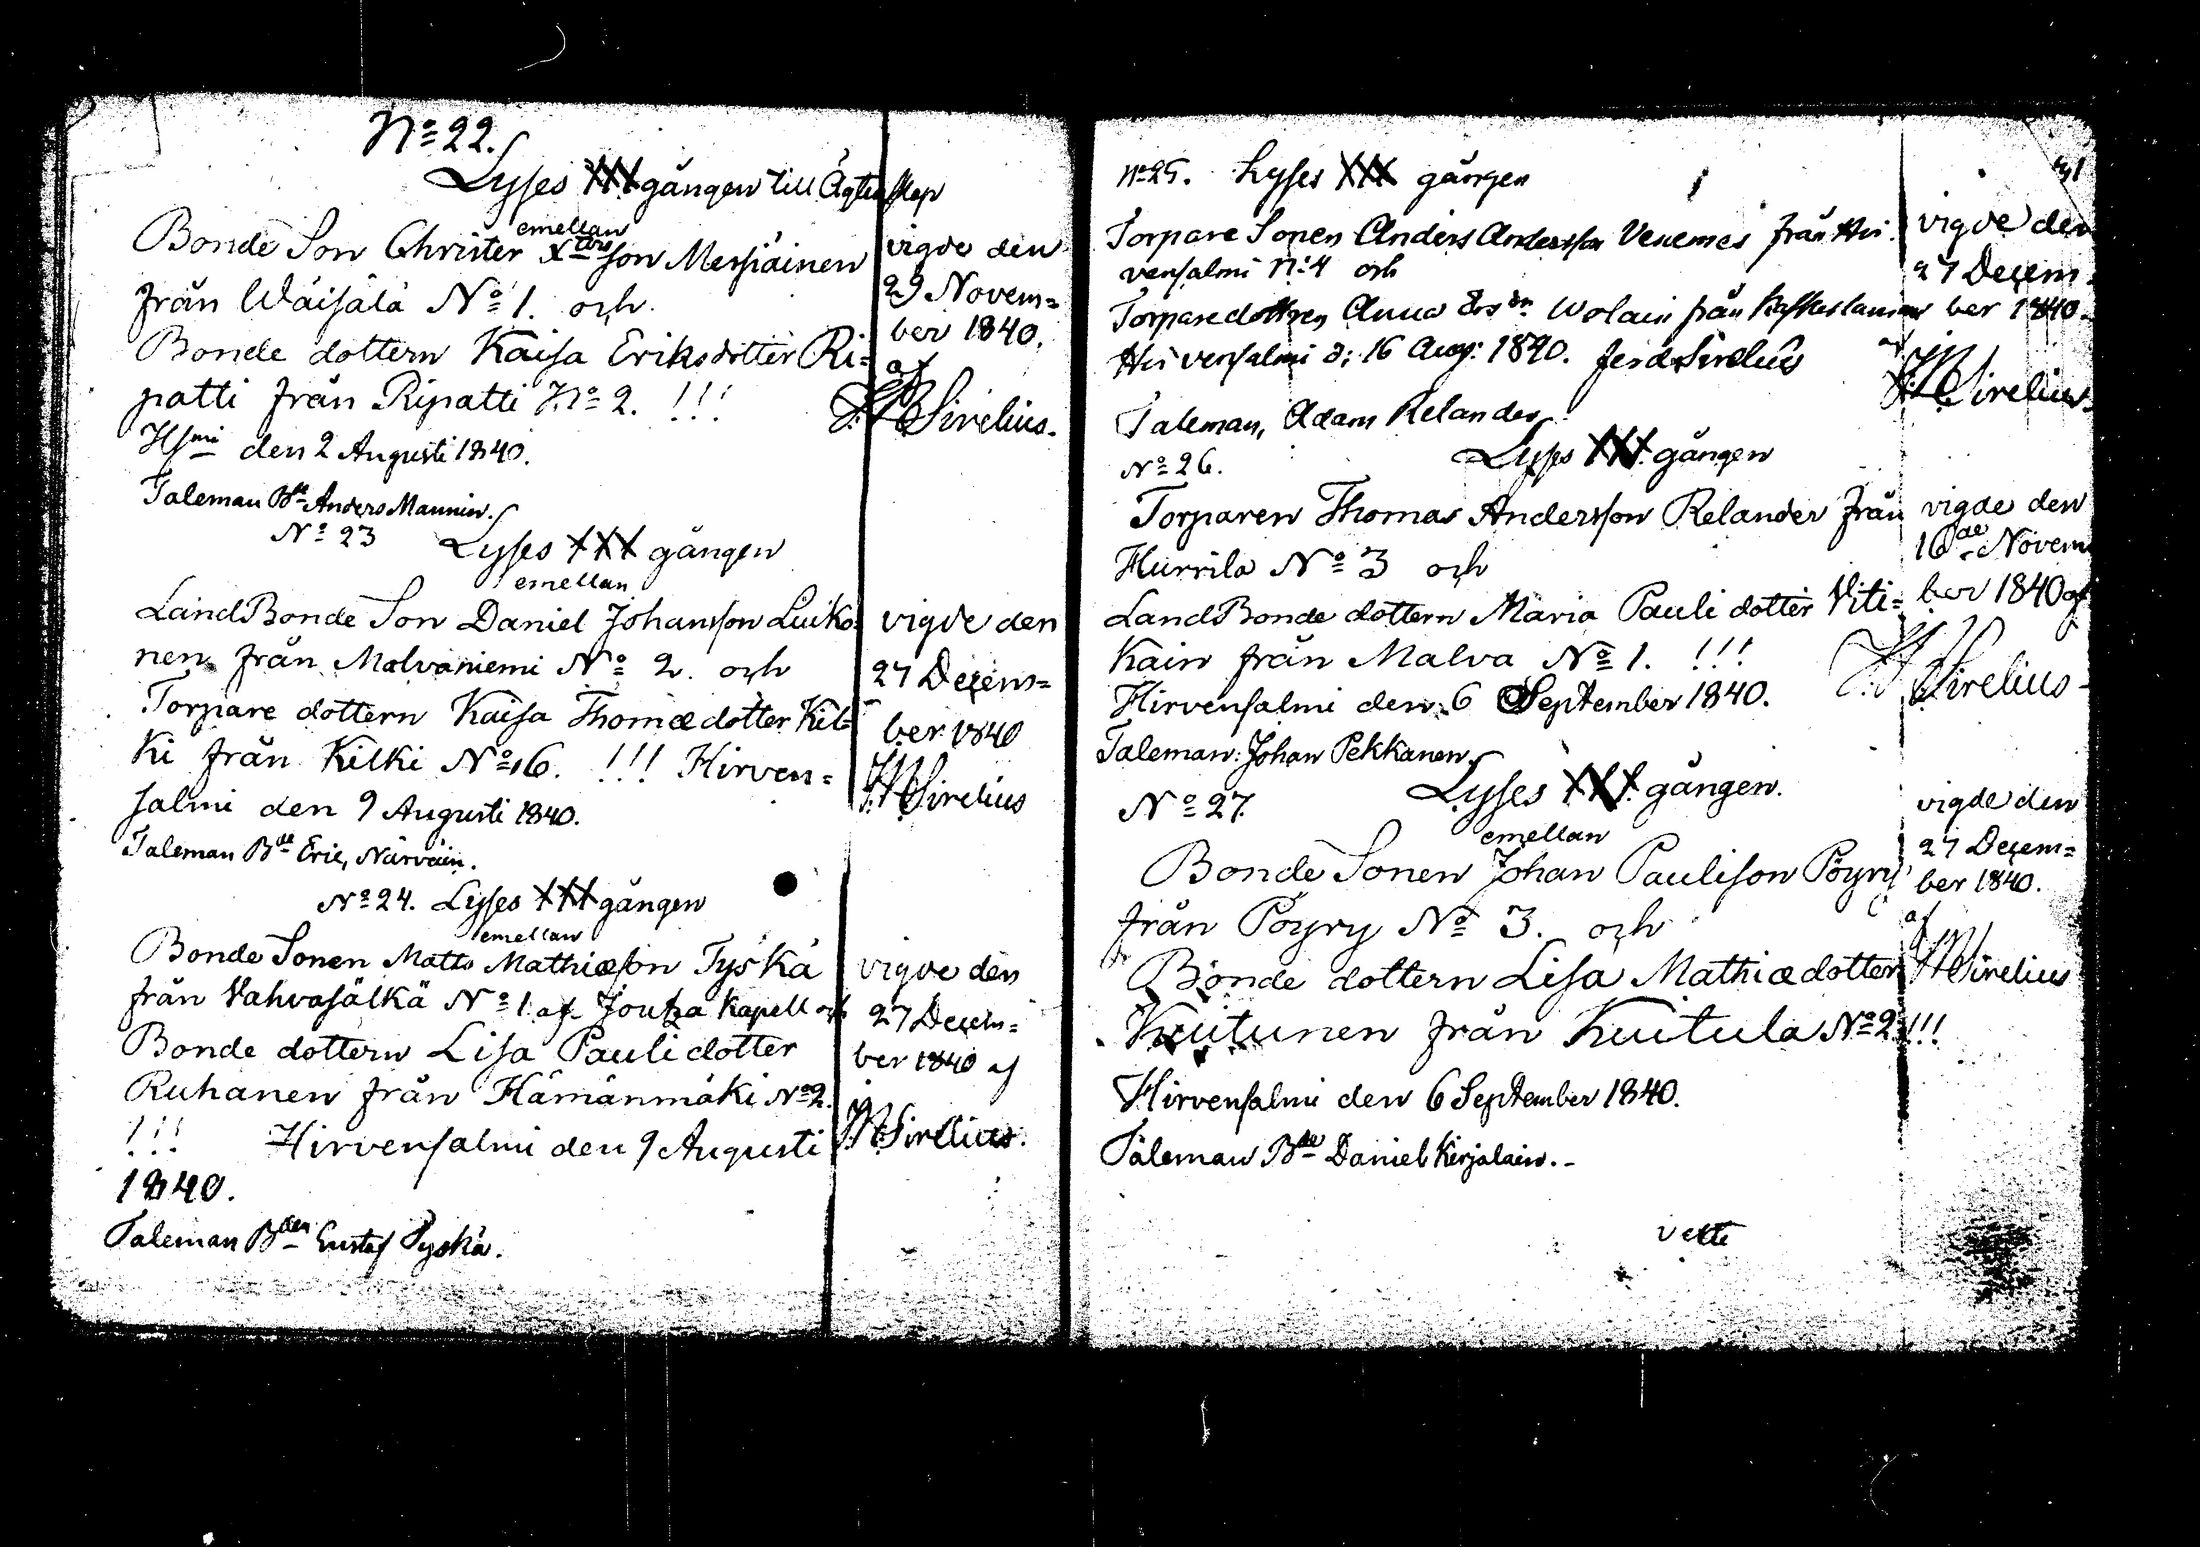 No 22.
Lyses XXX gången till Ägtenskap
emellan
Bonde Son Christer Xters son Messiäinen
från Wäisälä No 1. och
Bonde dottern Kaisa Eriksdotter Ri=
patti från Ripatti No 2. !!!
Hsmi den 2 Augusti 1840.
Taleman Bde Anders Mannin.
vigde den
29 Novem=
ber 1840.
af
Sirelius.
No 23 Lyses XXX gången
emellan
LandBonde Son Daniel Johansson Luiko=
nen från Malvaniemi No 2. och
Torpare dottern Kaisa Thomædotter Kil=
ki från Kilki No 16. !!! Hirven=
salmi den 9 Augusti 1840.
Taleman Bde Eric, Närväin.
vigde den
27 Decem=
ber 1840
Sirelius
No 24. Lyses XXX gången
emellan
Bonde Sonen Matts Mathiæson Tyskä
från Vahvasälkä No 1. af Joutza Kapell och
Bonde dottern Lisa Pauli dotter
Ruhanen från Hämänmäki No 2.
!!! Hirvensalmi den 9 Augusti
1840.
Taleman Bden Gustaf Tyskä.
vigde den
27 Decem=
ber 1840 af
Sirelius.
31
No 25. Lyses XXX gången
Torpare Sonen Anders Andersson Venemes från Hir=
vensalmi No 4 och
Torparedottren Anna Ersdn Wolain från
Hirvensalmi d: 16 Aug: 1840. Ferd Sirelius
Taleman, Adam Relander
vigde den
27 Decem=
ber 1840.
af
Sirelius.
No 26. Lyses XXX. gången
Torparen Thomas Andersson Relander från
Hurrila No 3 och
LandBonde dottern Maria Pauli dotter Viti=
kain från Malva No 1. !!!
Hirvensalmi den 6 September 1840.
Taleman: Johan Pekkanen.
vigde den
16de Novem
ber 1840 af
Sirelius
No 27. Lyses XXX. gången.
emellan
Bonde Sonen Johan Paulison Pöyry
från Pöyry No 3. och
Bonde dottern Lisa Mathiædotter
Kuitunen från Kuitula No 2 !!!
Hirvensalmi den 6 September 1840.
Taleman Bde Daniel Kirjalain.
vigde den
27 Decem=
ber 1840.
af
Sirelius